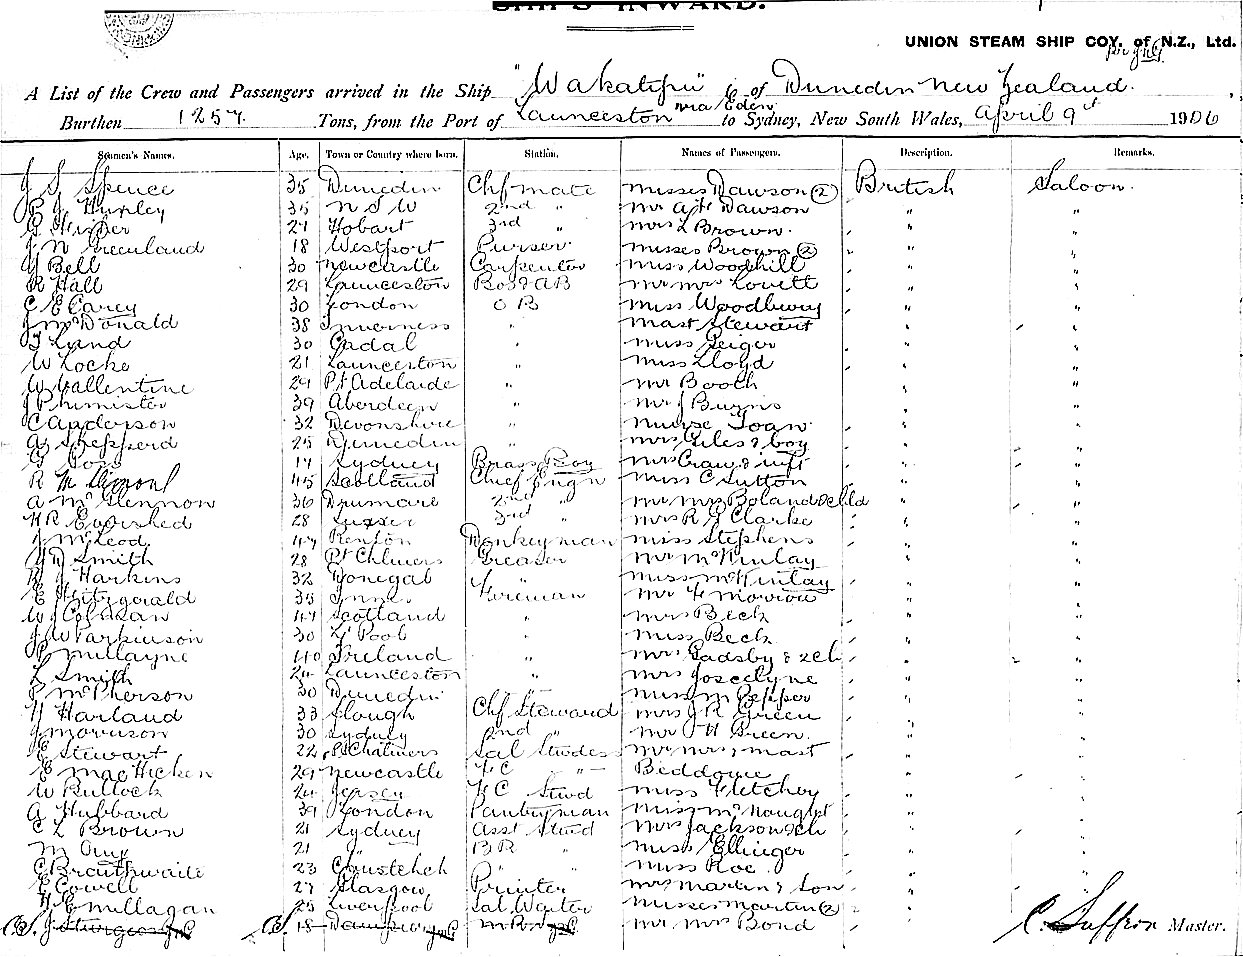 SHIP'S INWARD.
UNION STEAM SHIP COY. of N.Z., Ltd.
A List of the Crew and Passengers arrived in the Ship "Wakatipu" of Dunedin New Zealand.
via Eden
Burthen 1257. Tons, from the Port of Launceston to Sydney, New South Wales, April 9th 1906
Seamen's Names. Age. Town or Country where born. Station. Names of Passengers. Description. Remarks.
J S Spence 35 Dunedin Chf mate Misses Dawson (2) British Saloon.
Huxley 35 N S W 2nd " Mr A H Dawson " "
27 Hobart 3rd " Mrs L Brown. " "
J N Greenland 18 Westport Purser Misses Brown (2) " "
Bell 30 Newcastle Carpenter Miss Woodhill " "
R Hall 29 Launceston Bos & AB Mr Mrs Lovett " "
C E Carey 30 London Miss Woodbury " "
J McDonald 38 Inverness " Mast Stewart " "
Lund 30 " Miss Geiger " "
W Locke 21 Launceston " Miss Lloyd " "
W Vallentine 29 Pt Adelaide " Mr Booth " "
J Phimister 39 Aberdeen " Mr J Burns " "
C Anderson 32 Devonshire " Nurse " "
A Shepperd 25 Dunedin " Mrs Giles & boy " "
17 Sydney Brass Boy Mrs Craw & inft " "
R M 45 Scotland Chief Engn Miss C Sutton " "
A McGlennon 36 2nd " Mr Mrs Boland & chld " "
H R 28 Sussex 3rd " Mrs R G Clarke " "
J McLeod 47 Renton Donkeyman Miss Stephens " "
Smith 28 Pt Chlmers Greaser Mr McKinlay " "
Harkins 32 Donegal " Miss McKinlay " "
E Fitzgerald 35 Fireman Mr " "
W J 47 Scotland " Mrs Beck " "
J W Parkinson 30 L'Pool " Miss Beck " "
P Mullayne 40 Ireland " Mrs Gadsby & 2 ch " "
L Smith 24 Launceston " Mrs Joscelyne " "
P McPherson 30 Dunedin Miss M Pepper " "
Harland 33 Slough Chf Steward Mrs J R Green " "
J Morrison 30 Sydney 2nd " Mr J H Green. " "
E Stewart 22 Pt Chalmers Sal Stwdess Mr Mrs & mast " "
E MacHicken 29 Newcastle F C " Beddome " "
W Bullock 24 Jersey F C Stwd Miss Fletcher " "
A Hubbard 39 London Pantryman Miss McNaught " "
C L Brown 21 Sydney Asst Stwd Mrs Jackson & ch " "
M 21 " B R " Miss Ellinger " "
C Braithwaite 23 Chustchch " " Miss Roe " "
E Cowell 27 Glasgow Printer Mrs Martin & Son " "
H E Millagan 25 Liverpool Sal Waiter Misses Martin (2) " "
J Sturgeon 18 Mr Mrs Bond " C. Master.